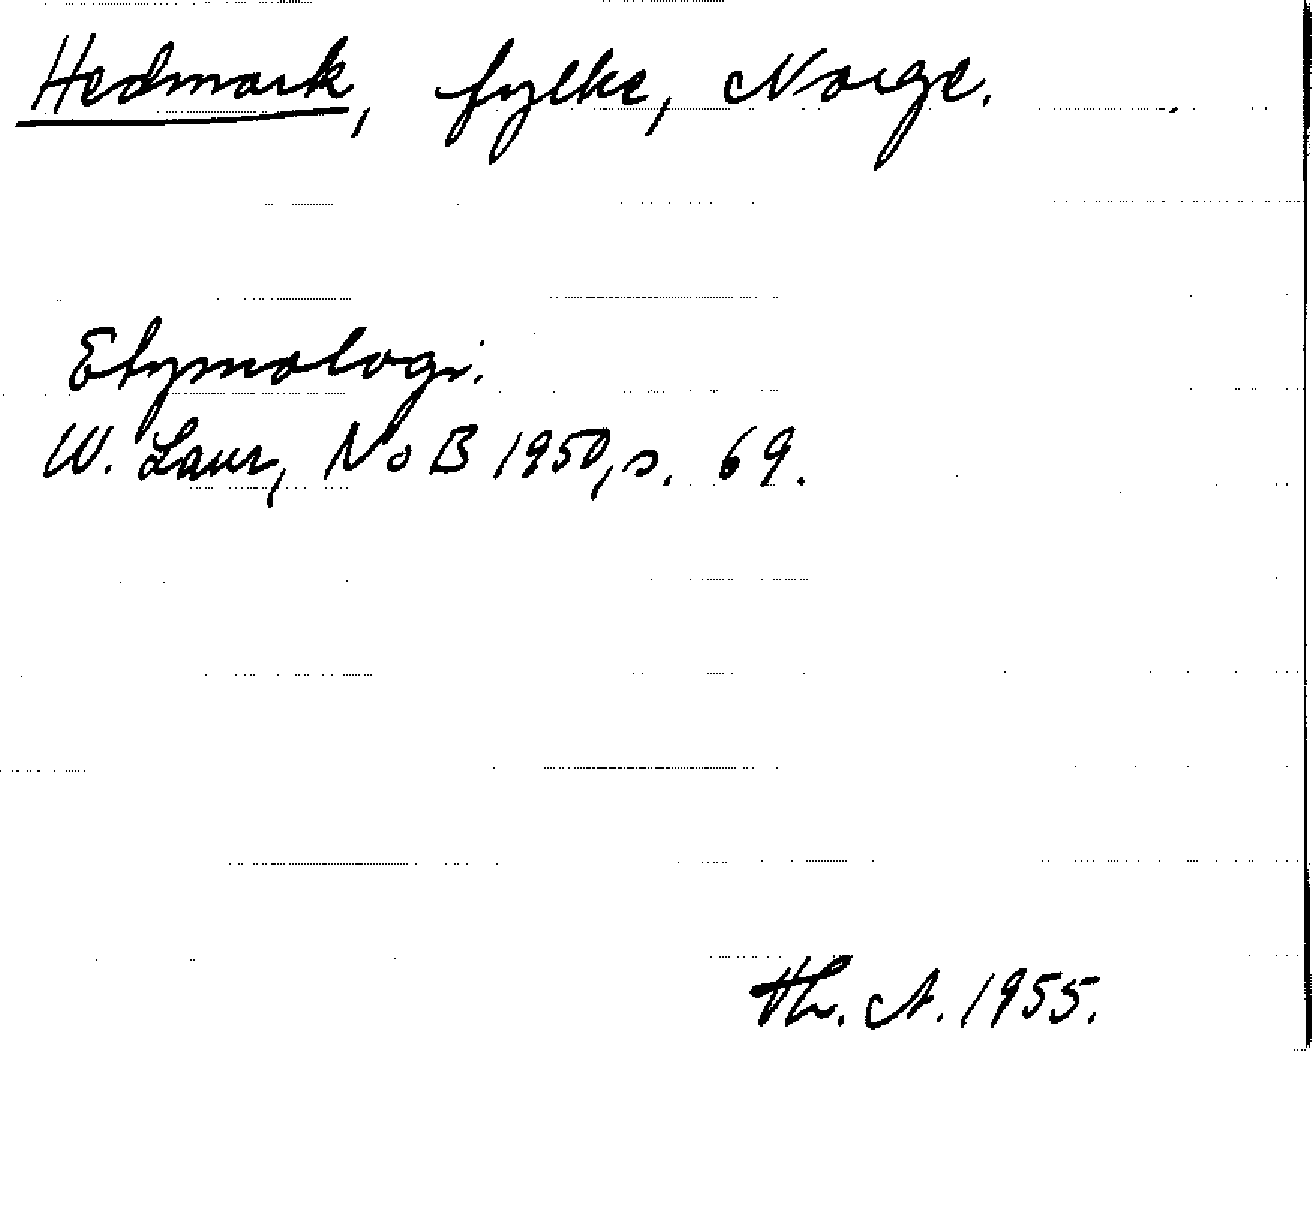 Hedmark, fylke, Norge.
Etymologi.
W. Laur, NoB 1950, s. 69.
Th. A. 1955.